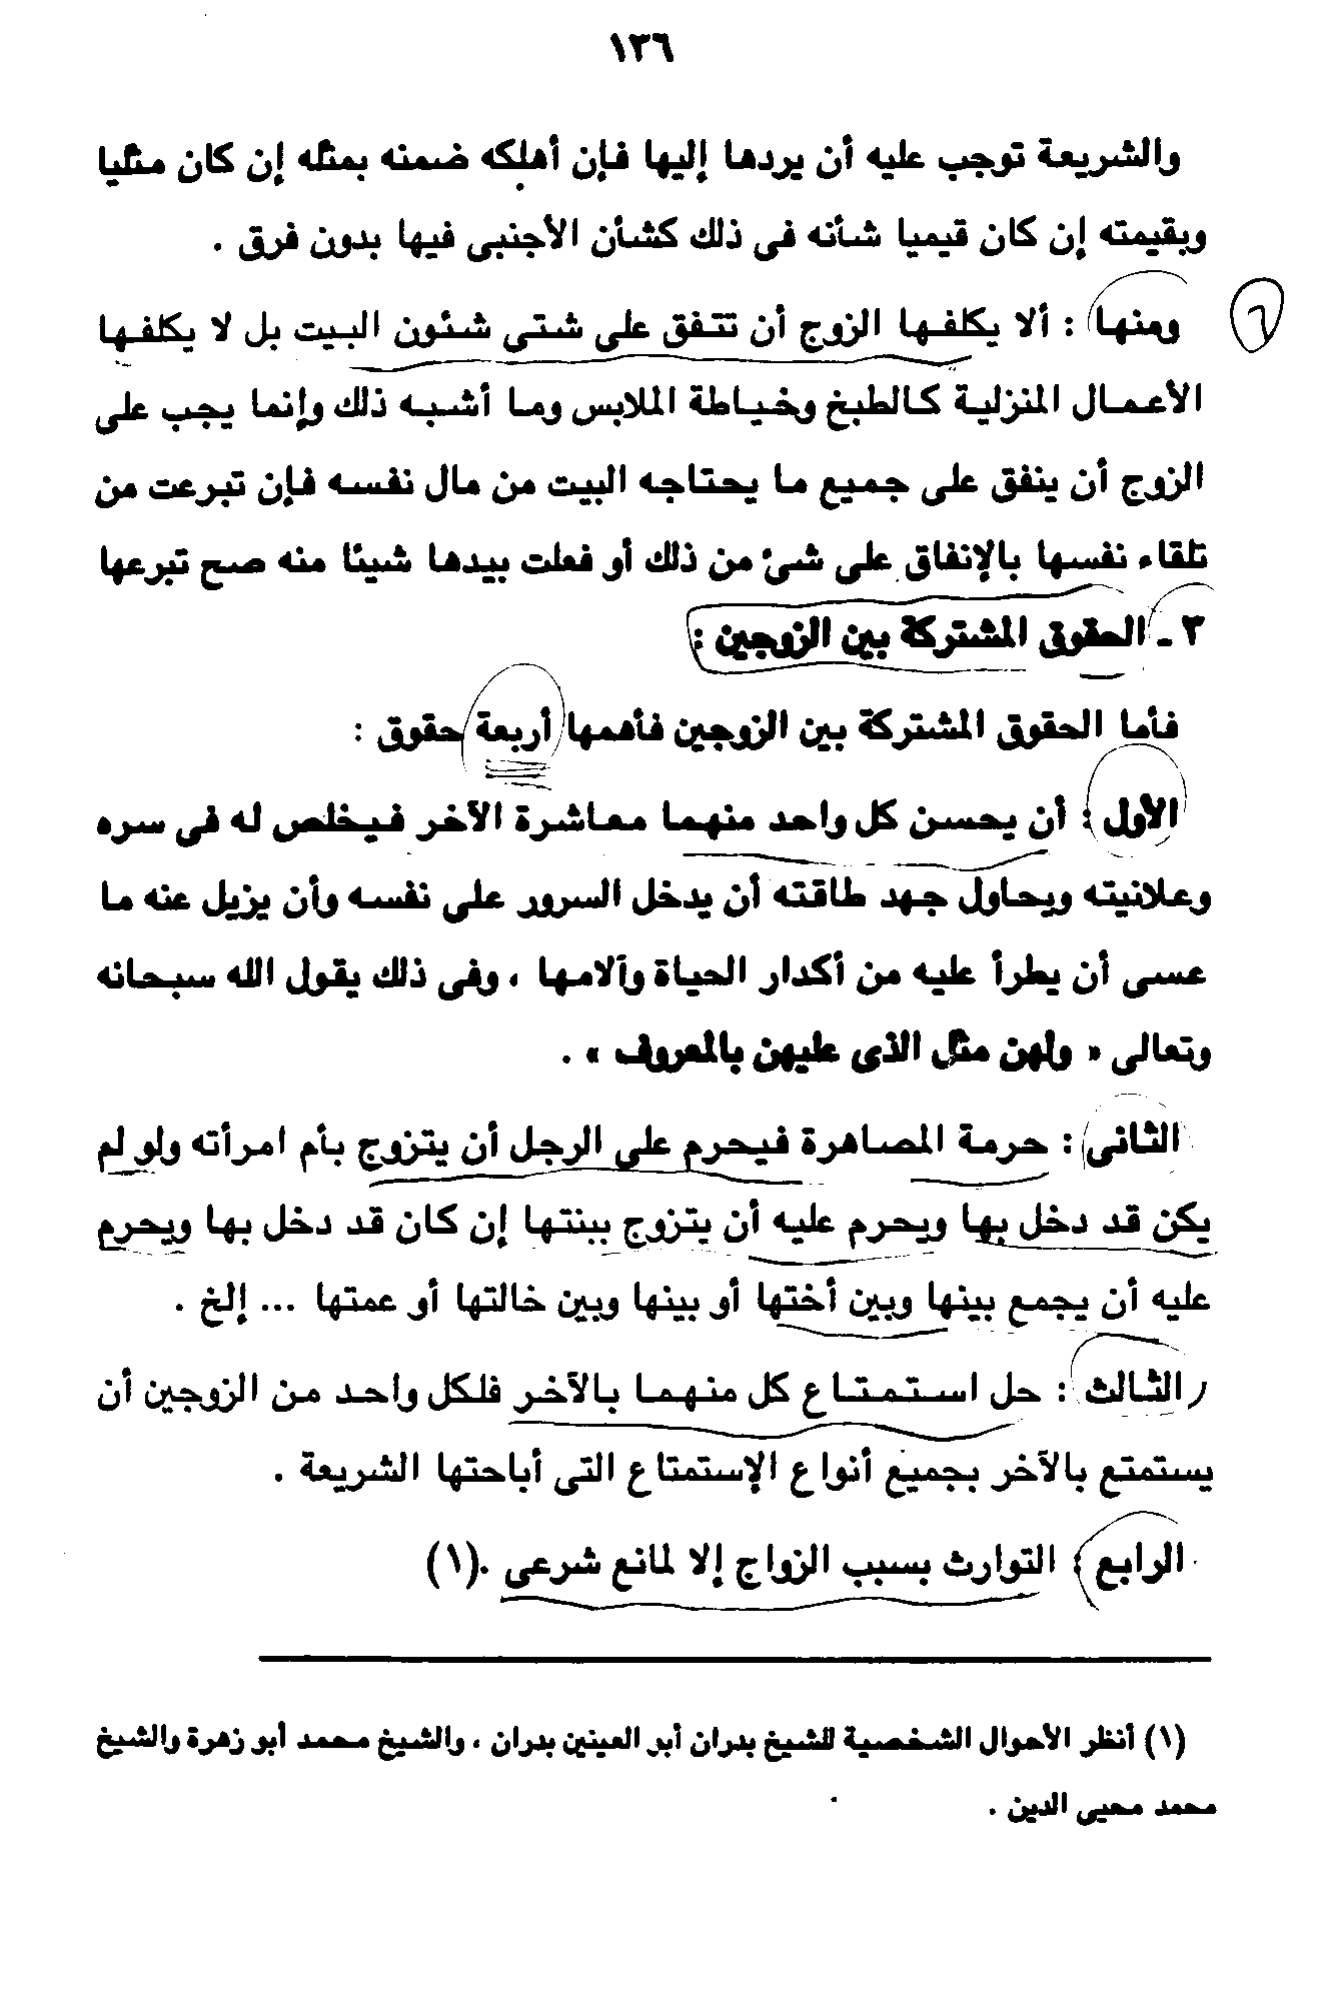 ١٣٦
والشريعة توجب عليه أن يردها إليها فإن أهلكه ضمنه بمثله إن كان مثليا
وبقيمته إن كان قيميا شأنه فى ذلك كشأن الأجنبى فيها بدون فرق .
ومنها : ألا يكلفها الزوج أن تتفق على شتى شئون البيت بل لا يكلفها
الأعمال المنزلية كالطبخ وخياطة الملابس وما أشبه ذلك وإنما يجب على
الزوج أن ينفق على جميع ما يحتاجه البيت من مال نفسه فإن تبرعت من
تلقاء نفسها بالإنفاق على شئ من ذلك أو فعلت بيدها شيئا منه صح تبرعها
٣ ـ الحقوق المشتركة بين الزوجين :
فأما الحقوق المشتركة بين الزوجين فأهمها أربعة حقوق :
الأول : أن يحسن كل واحد منهما معاشرة الآخر فيخلص له فى سره
وعلانيته ويحاول جهد طاقته أن يدخل السرور على نفسه وأن يزيل عنه ما
عسى أن يطرأ عليه من أكدار الحياة وآلامها ، وفى ذلك يقول الله سبحانه
وتعالى « ولهن مثل الذى عليهن بالمعروف » .
الثانى : حرمة المصاهرة فيحرم على الرجل أن يتزوج بأم امرأته ولو لم
يكن قد دخل بها ويحرم عليه أن يتزوج ببنتها إن كان قد دخل بها ويحرم
عليه أن يجمع بينها وبين أختها أو بينها وبين خالتها أو عمتها ... إلخ .
الثالث : حل استمتاع كل منهما بالآخر فلكل واحد من الزوجين أن
يستمتع بالآخر بجميع أنواع الإستمتاع التى أباحتها الشريعة .
الرابع : التوارث بسبب الزواج إلا لمانع شرعى .(١)
(١) أنظر الأحوال الشخصية للشيخ بدران أبو العينين بدران ، والشيخ محمد أبو زهرة والشيخ
محمد محيى الدين .